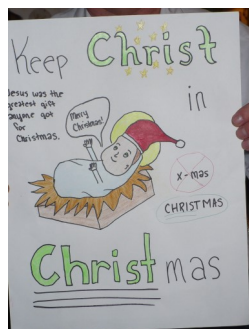 Keep Christ
in
Jesus was the
greatest gift
anyone got
for
Christmas.
Merry
Christmas!
X-mas
CHRISTMAS
Christmas